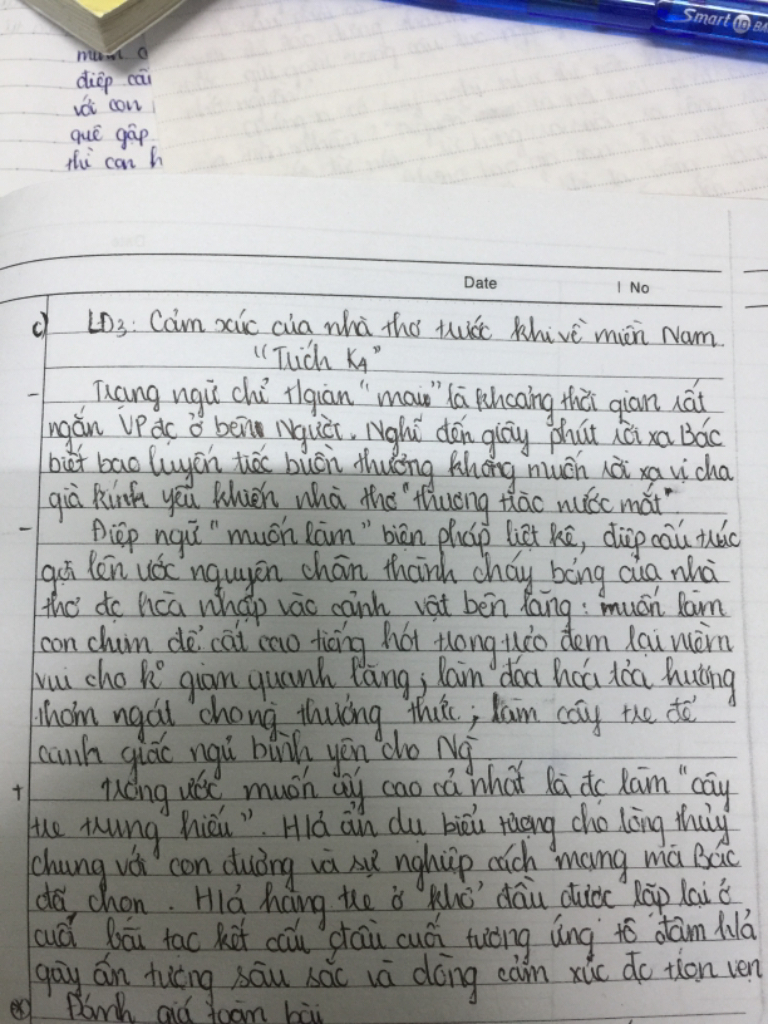 Smart
điệp cấu
với con
quê gặp
thì con h
Date | No
c) LD3: Cảm xúc của nhà thơ trước khi về miền Nam.
"Trích K4"
- Trạng ngữ chỉ tgian "mai" là khoảng thời gian rất
ngắn VP đc ở bên Người. Nghĩ đến giây phút rời xa Bác
biết bao luyến tiếc buồn thương không muốn rời xa vị cha
già kính yêu khiến nhà thơ "thương trào nước mắt".
- Điệp ngữ "muốn làm" biện pháp liệt kê, điệp cấu trúc
gợi lên ước nguyện chân thành cháy bỏng của nhà
thơ đc hòa nhập vào cảnh vật bên lăng: muốn làm
con chim để cất cao tiếng hót trong trẻo đem lại niềm
vui cho k° gian quanh lăng; làm đóa hoa tỏa hương
thơm ngát cho ng thưởng thức; làm cây tre để
canh giấc ngủ bình yên cho Ng
+ trong ước muốn ấy cao cả nhất là đc làm "cây
tre trung hiếu". H/ả ẩn dụ biểu tượng cho lòng thủy
chung với con đường và sự nghiệp cách mạng mà Bác
đã chọn. H/ả hàng tre ở khổ đầu được lặp lại ở
cuối bài tạc kết cấu đầu cuối tương ứng tô đậm h/ả
gây ấn tượng sâu sắc và dòng cảm xúc đc trọn vẹn
Đánh giá toàn bài